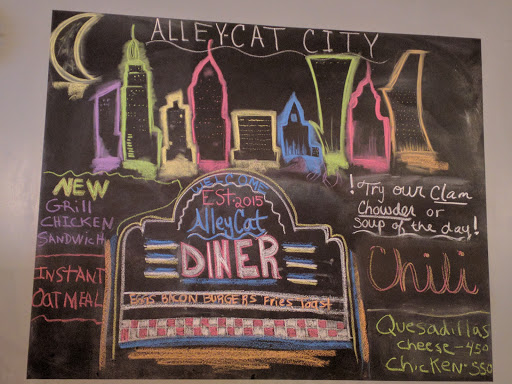 ALLEY-CAT CITY
WELCOME
EST. 2015
AlleyCat
DINER
EGGS BACON BURGERS Fries Toast
NEW
GRill
CHICKEN
SANDWICH
INSTANT
OATMEAL
! Try our Clam
Chowder or
Soup of the day!
Chili
Quesadillas
cheese-450
Chicken-550